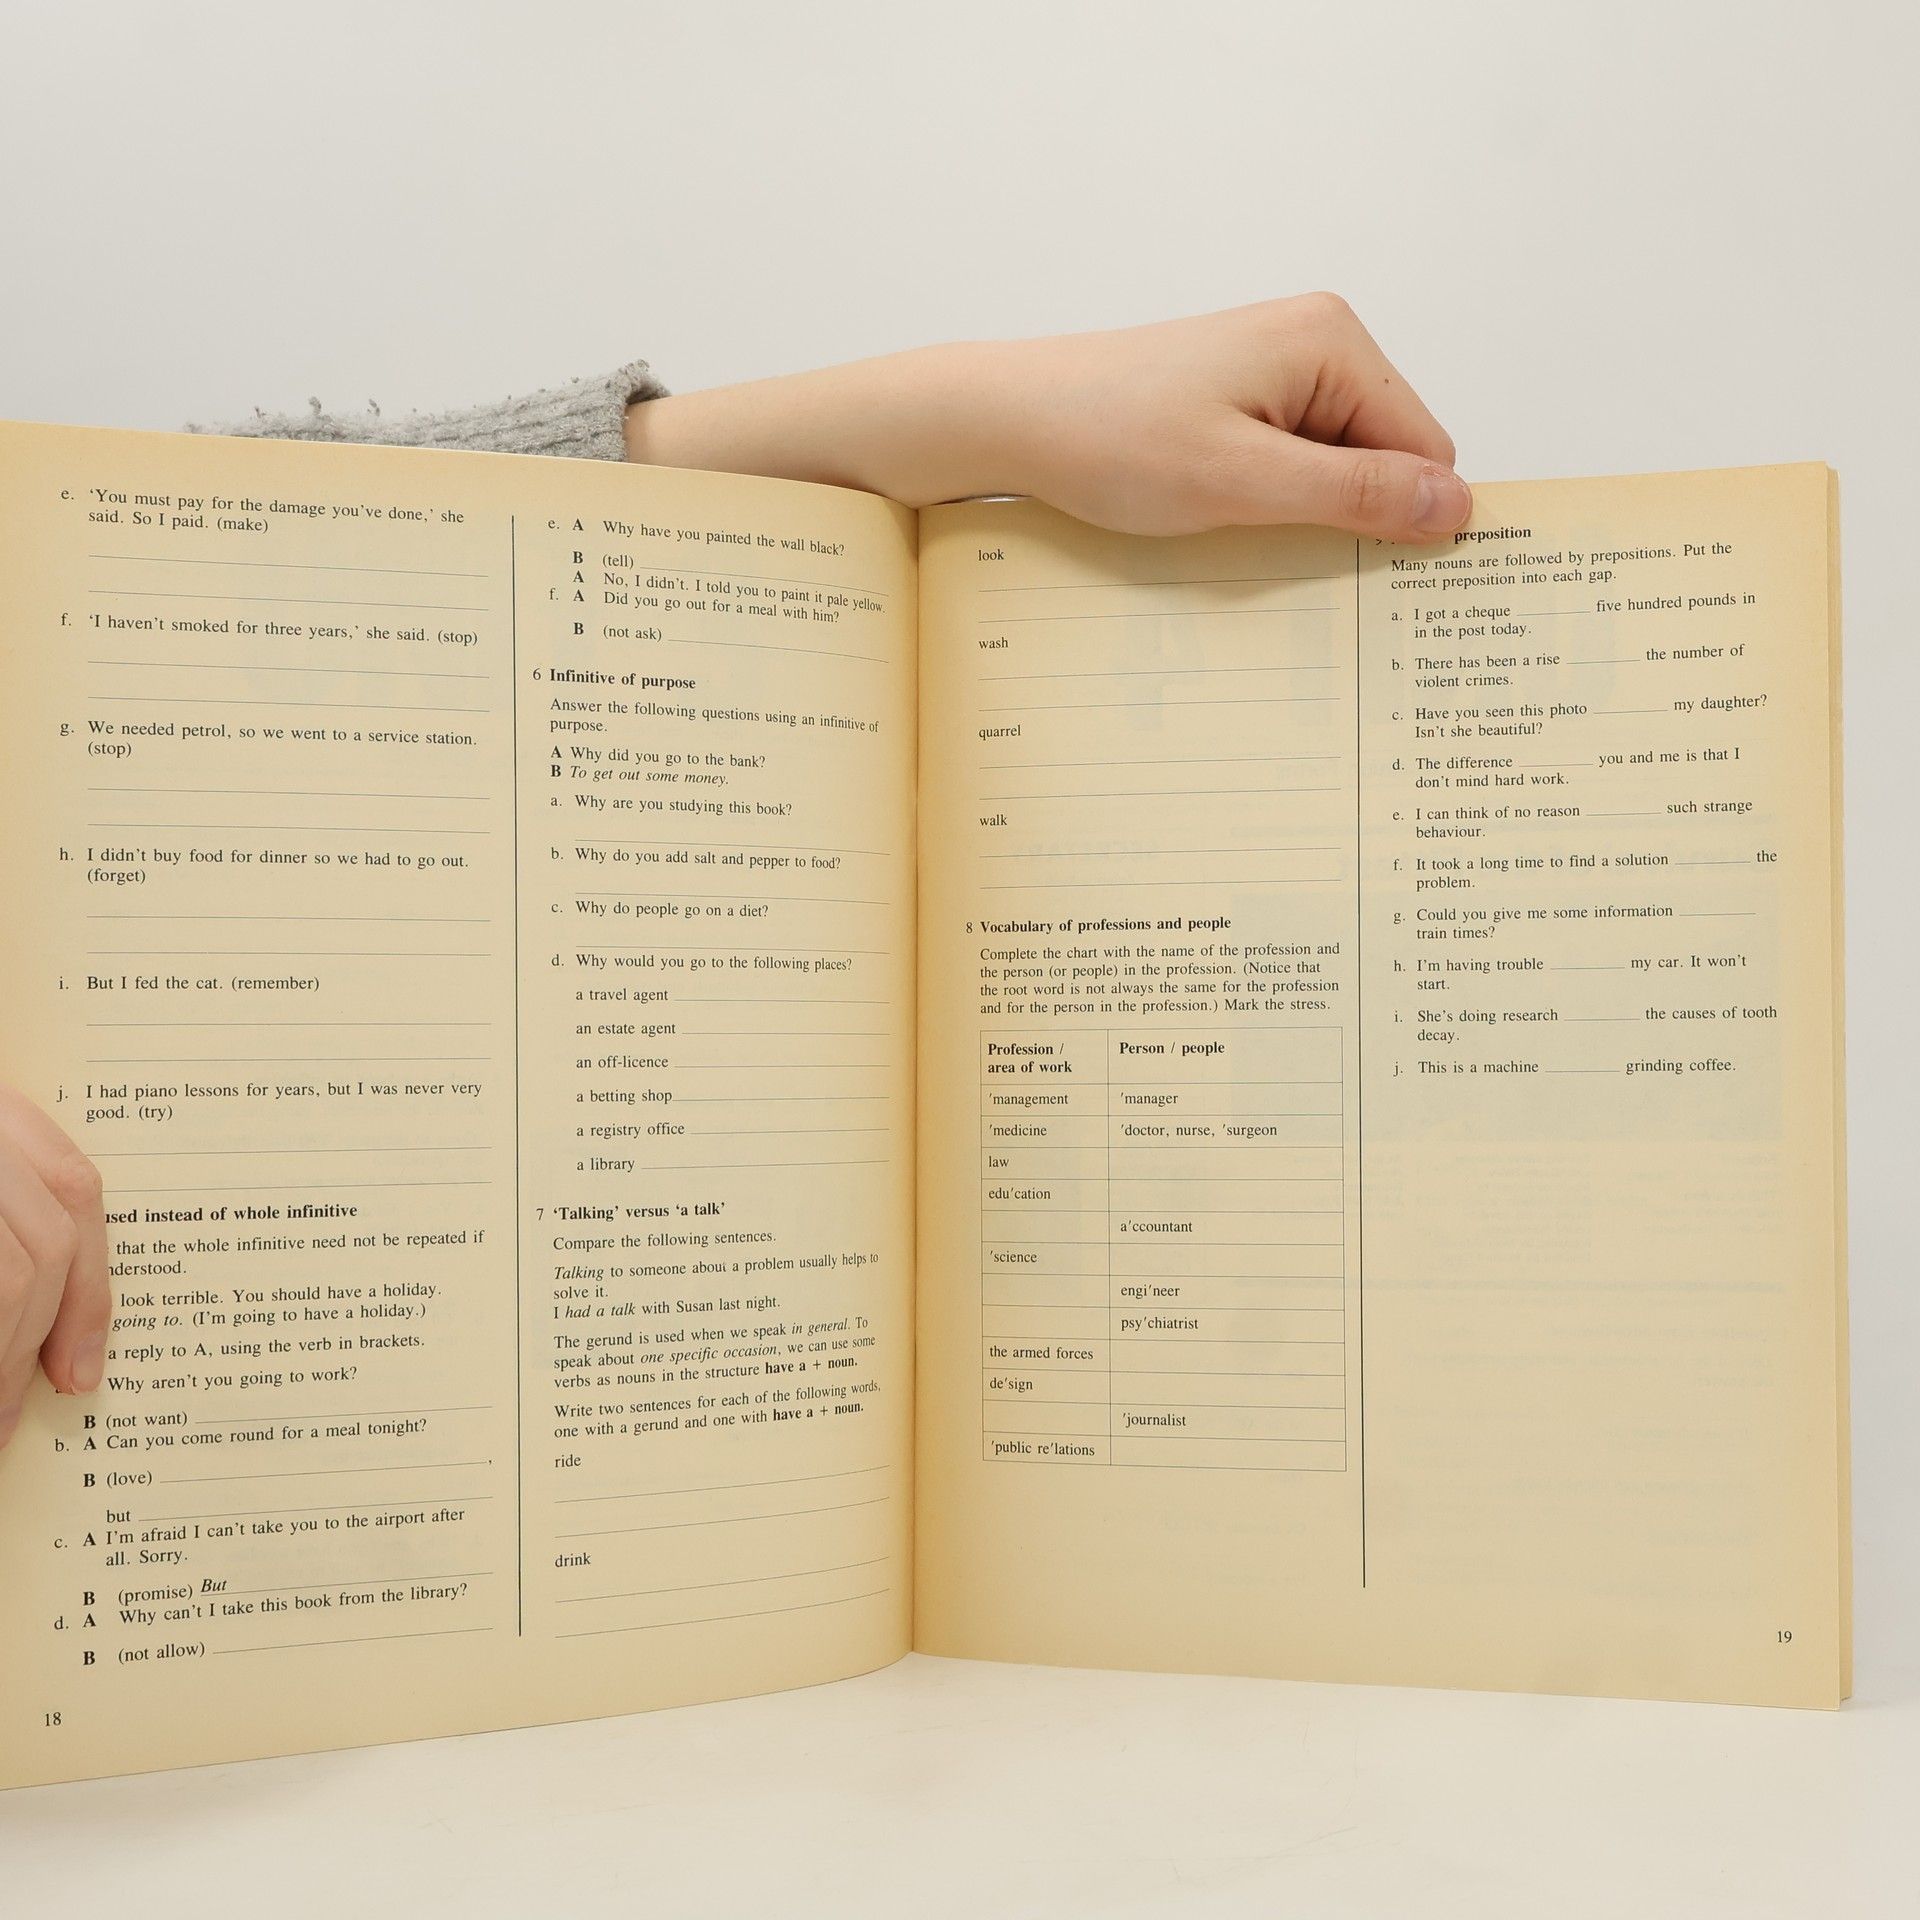 e. ‘You must pay for the damage you’ve done,’ she
said. So I paid. (make)
f. ‘I haven’t smoked for three years,’ she said. (stop)
g. We needed petrol, so we went to a service station.
(stop)
h. I didn’t buy food for dinner so we had to go out.
(forget)
i. But I fed the cat. (remember)
j. I had piano lessons for years, but I was never very
good. (try)
instead of whole infinitive
that the whole infinitive need not be repeated if
look terrible. You should have a holiday.
going to. (I’m going to have a holiday.)
a reply to A, using the verb in brackets.
Why aren’t you going to work?
B (not want)
b. A Can you come round for a meal tonight?
B (love) ,
but
c. A I’m afraid I can’t take you to the airport after
all. Sorry.
B (promise) But
d. A Why can’t I take this book from the library?
B (not allow)
18
e. A Why have you painted the wall black?
B (tell)
A No, I didn’t. I told you to paint it pale yellow.
f. A Did you go out for a meal with him?
B (not ask)
6 Infinitive of purpose
Answer the following questions using an infinitive of
purpose.
A Why did you go to the bank?
B To get out some money.
a. Why are you studying this book?
b. Why do you add salt and pepper to food?
c. Why do people go on a diet?
d. Why would you go to the following places?
a travel agent
an estate agent
an off-licence
a betting shop
a registry office
a library
7 ‘Talking’ versus ‘a talk’
Compare the following sentences.
Talking to someone about a problem usually helps to
solve it.
I had a talk with Susan last night.
The gerund is used when we speak in general. To
speak about one specific occasion, we can use some
verbs as nouns in the structure have a + noun.
Write two sentences for each of the following words,
one with a gerund and one with have a + noun.
ride
drink
look
wash
quarrel
walk
8 Vocabulary of professions and people
Complete the chart with the name of the profession and
the person (or people) in the profession. (Notice that
the root word is not always the same for the profession
and for the person in the profession.) Mark the stress.
Profession / Person / people
area of work
'management 'manager
'medicine 'doctor, nurse, 'surgeon
law
edu'cation
a'ccountant
'science
engi'neer
psy'chiatrist
the armed forces
de'sign
'journalist
'public re'lations
preposition
Many nouns are followed by prepositions. Put the
correct preposition into each gap.
a. I got a cheque five hundred pounds in
in the post today.
b. There has been a rise the number of
violent crimes.
c. Have you seen this photo my daughter?
Isn’t she beautiful?
d. The difference you and me is that I
don’t mind hard work.
e. I can think of no reason such strange
behaviour.
f. It took a long time to find a solution the
problem.
g. Could you give me some information
train times?
h. I’m having trouble my car. It won’t
start.
i. She’s doing research the causes of tooth
decay.
j. This is a machine grinding coffee.
19